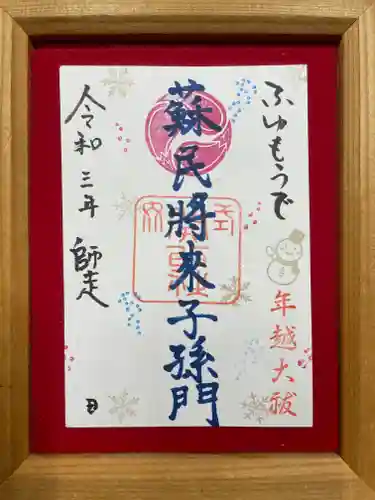 ふゆもうで
年越大祓
蘇民將來子孫門
令和三年 師走